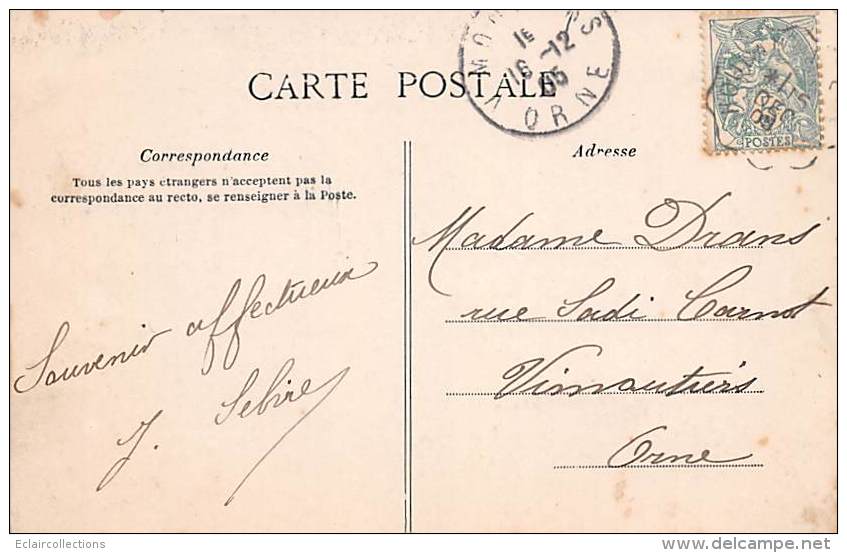 CARTE POSTALE
1e
16-12
05
ORNE
15
DEC
05
POSTES
Correspondance
Tous les pays étrangers n'acceptent pas la
correspondance au recto, se renseigner à la Poste.
Souvenir affectueux
J. Sebire
Adresse
Madame Drans
rue Sadi Carnot
Vimoutiers
Orne
Eclaircollections
www.delcampe.net